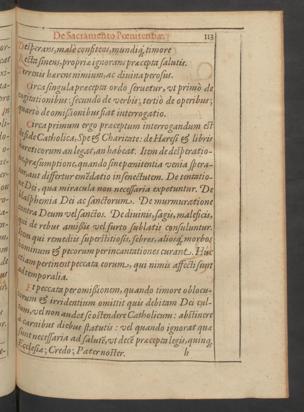 De Sacramento Pœnitentiæ. 113
desperans, malè confitens, mundiq́, timore
sine ns, propria ignorans præcepta salutis.
Terrenis harens nimium, ac divina perosus.
Circa singula præcepta ordo servetur, vt primò de
cogitationibus: secundo de verbis; tertiò de operibus;
quartò de omissionibus fiat interrogatio.
Circa primum ergo præceptum interrogandum est
Fide Catholica, Spe, & Charitate: de Hæresi & libris
hæreticorum an legat, an habeat. Item de desperatio-
præsumptione, quando sine pœnitentia venia spera-
tur, aut differtur emēdatio in senectutem. De tentatio-
ne Dei, qua miracula non necessaria expetuntur. De
blasphemia Dei ac sanctorum. De murmuratione
contra Deum vel sanctos. De divinis, sagis, maleficis,
de rebus amissis vel furto sublatis consuluntur.
qui remediis superstitiosis, febres, aliosq́, morbos
hominum & pecorum per incantationes curant. Huc
etiam pertinent peccata eorum, qui nimis affecti sunt
ad temporalia.
Et peccata per omissionem, quando timore oblocu-
torum & irridentium omittit quis debitam Dei cul-
tum, vel non audet se ostendere Catholicum: abstinere
a carnibus diebus statutis: vel quando ignorat quæ
sunt necessaria ad salutē, vt decē præcepta legis, quinq́,
Ecclesiæ; Credo; Pater noster.
h